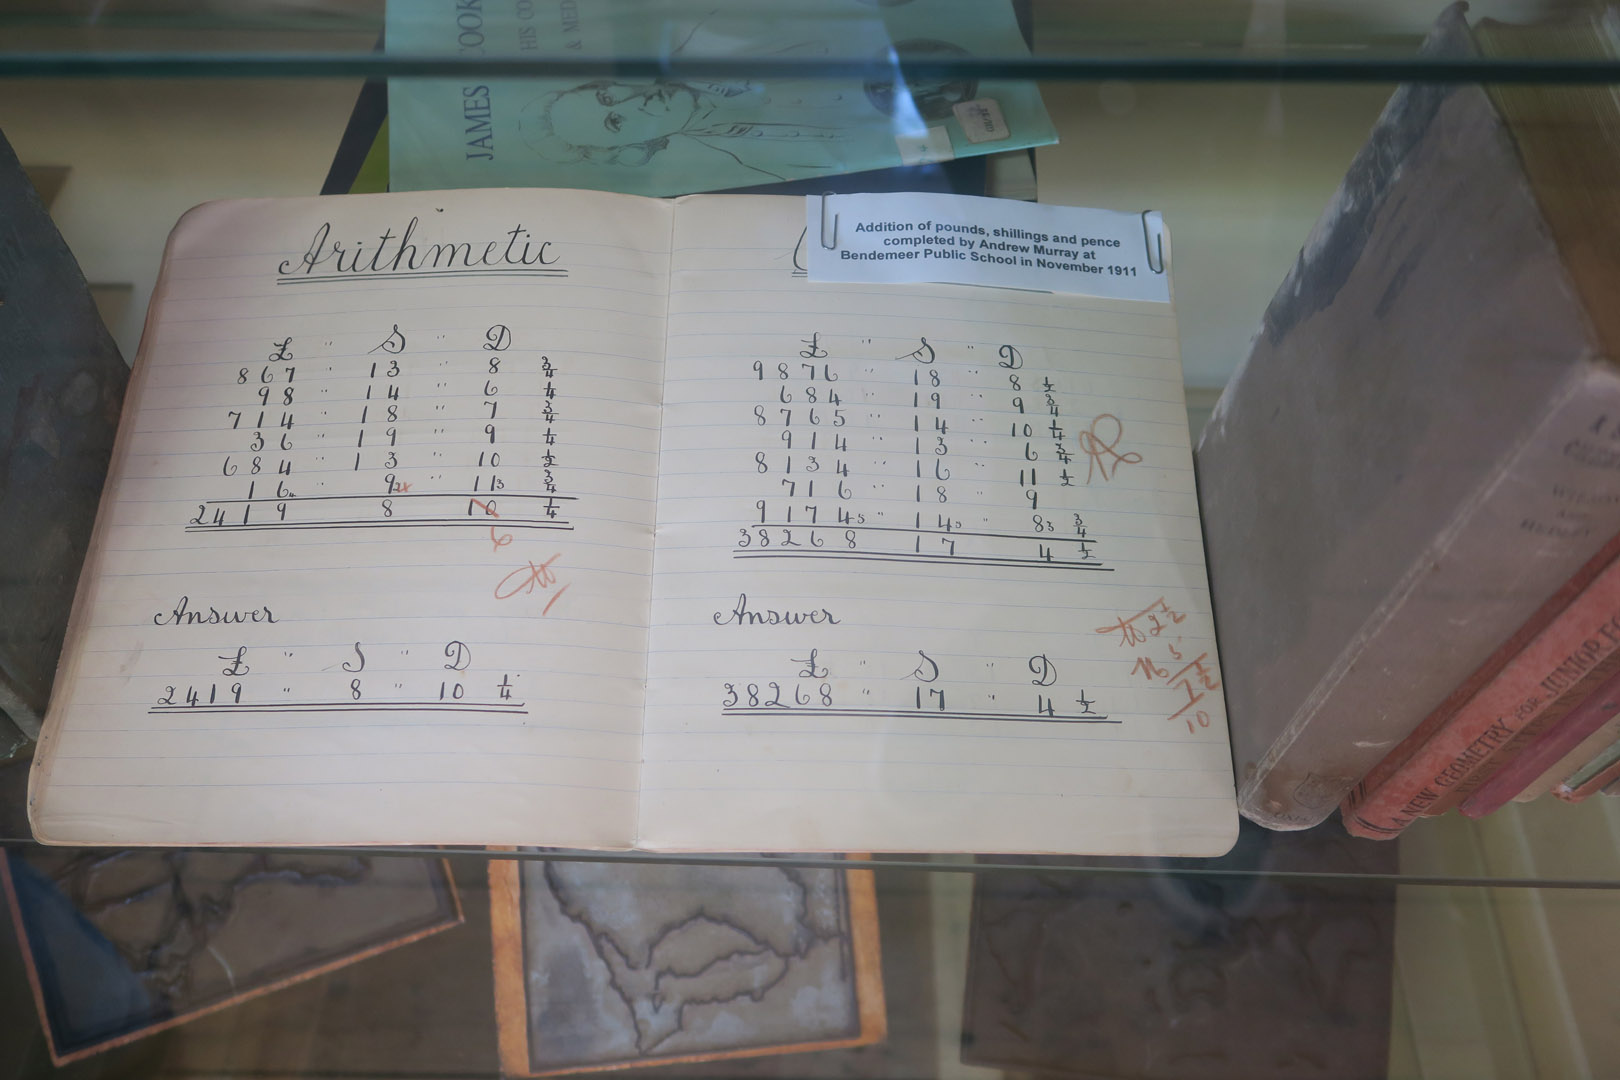 JAMES COOK
HIS CO
& MED
Addition of pounds, shillings and pence
completed by Andrew Murray at
Bendemeer Public School in November 1911
Arithmetic
£ " S " D
867 " 13 " 8 3/4
98 " 14 " 6 1/4
714 " 18 " 7 3/4
36 " 19 " 9 1/4
684 " 13 " 10 1/2
16 " 9 " 11 3/4
2419 8 10 1/4
6
Answer
£ " S " D
2419 " 8 " 10 1/4
£ " S " D
9876 " 18 " 8 1/2
684 " 19 " 9 3/4
8765 " 14 " 10 1/4
914 " 13 " 6 3/4
8134 " 16 " 11 1/2
716 " 18 " 9
9174 " 14 " 8 3/4
38268 17 4 1/2
Answer
£ " S " D
38268 " 17 " 4 1/2
10
A NEW GEOMETRY FOR JUNIOR FO